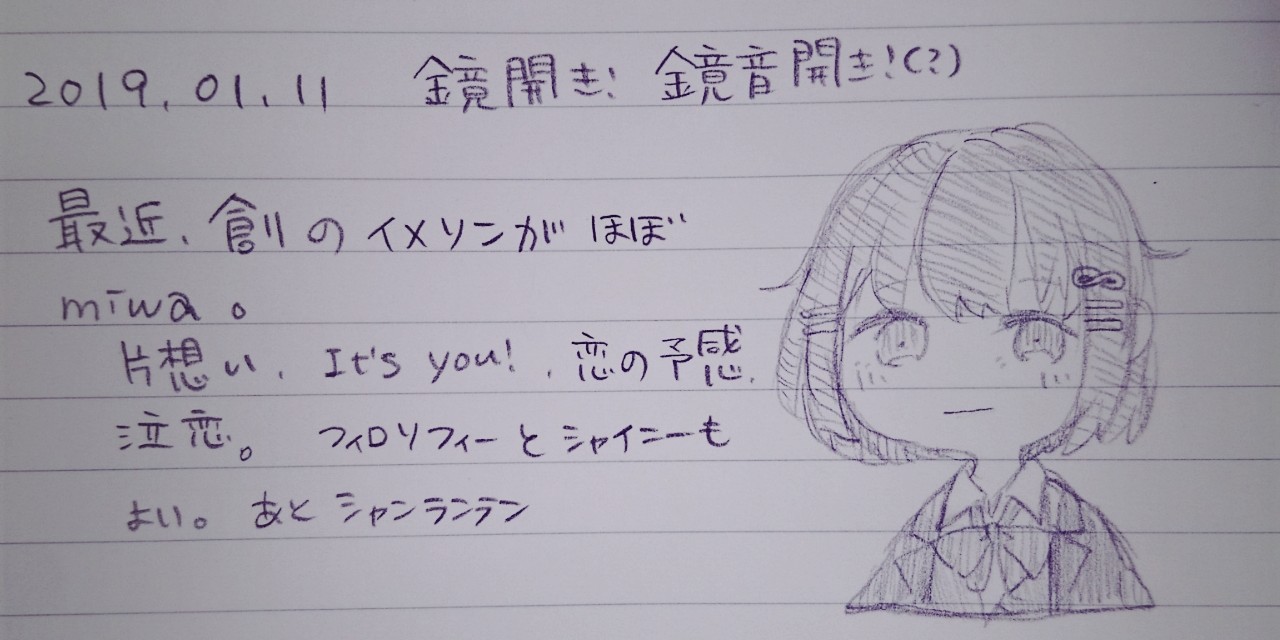 2019.01.11 鏡開き! 鏡音開き!(?)
最近、創のイメソンがほぼ
miwa。
片想い、It's you!、恋の予感、
泣恋。フィロソフィーとシャイニーも
よい。あとシャンランラン